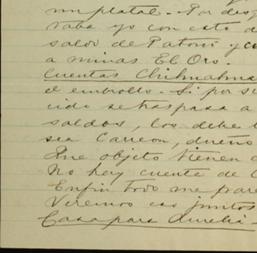 un platal. Por desg
raba yo con esto d
saldo de Patoni y cu
a minas El Oro.
Cuentas Chihuahua
el embrollo. Si por su
cido se traspasa a
saldos, los debe t
sea Carreon, dueño
Que objeto tienen d
No hay cuente de C
Enfin todo me pare
Veremos eas juntos
Casa para Aurelia.